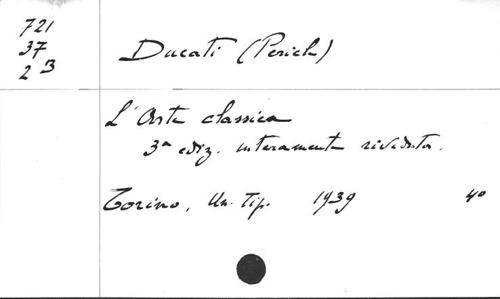 721
37
2 B
Ducati (Pericle)
L'Arte classica
3ª ediz. interamente riveduta.
Torino, Un. Tip. 1939 4º